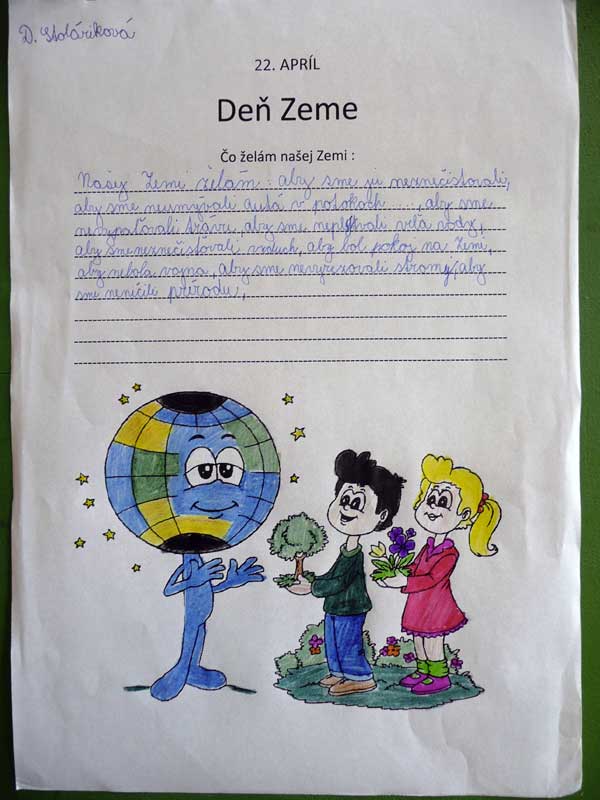 D. Stoláriková
22. APRÍL
Deň Zeme
Čo želám našej Zemi :
Našej Zemi želám : aby sme ju neznečisťovali,
aby sme neumývali autá v potokoch ...., aby sme
nevypaľovali trávu, aby sme neplytvali veľa vody,
aby sme neznečistovali vzduch, aby bol pokoj na Zemi,
aby nebola vojna, aby sme nevyrezovali stromy, aby
sme neničili prírodu,